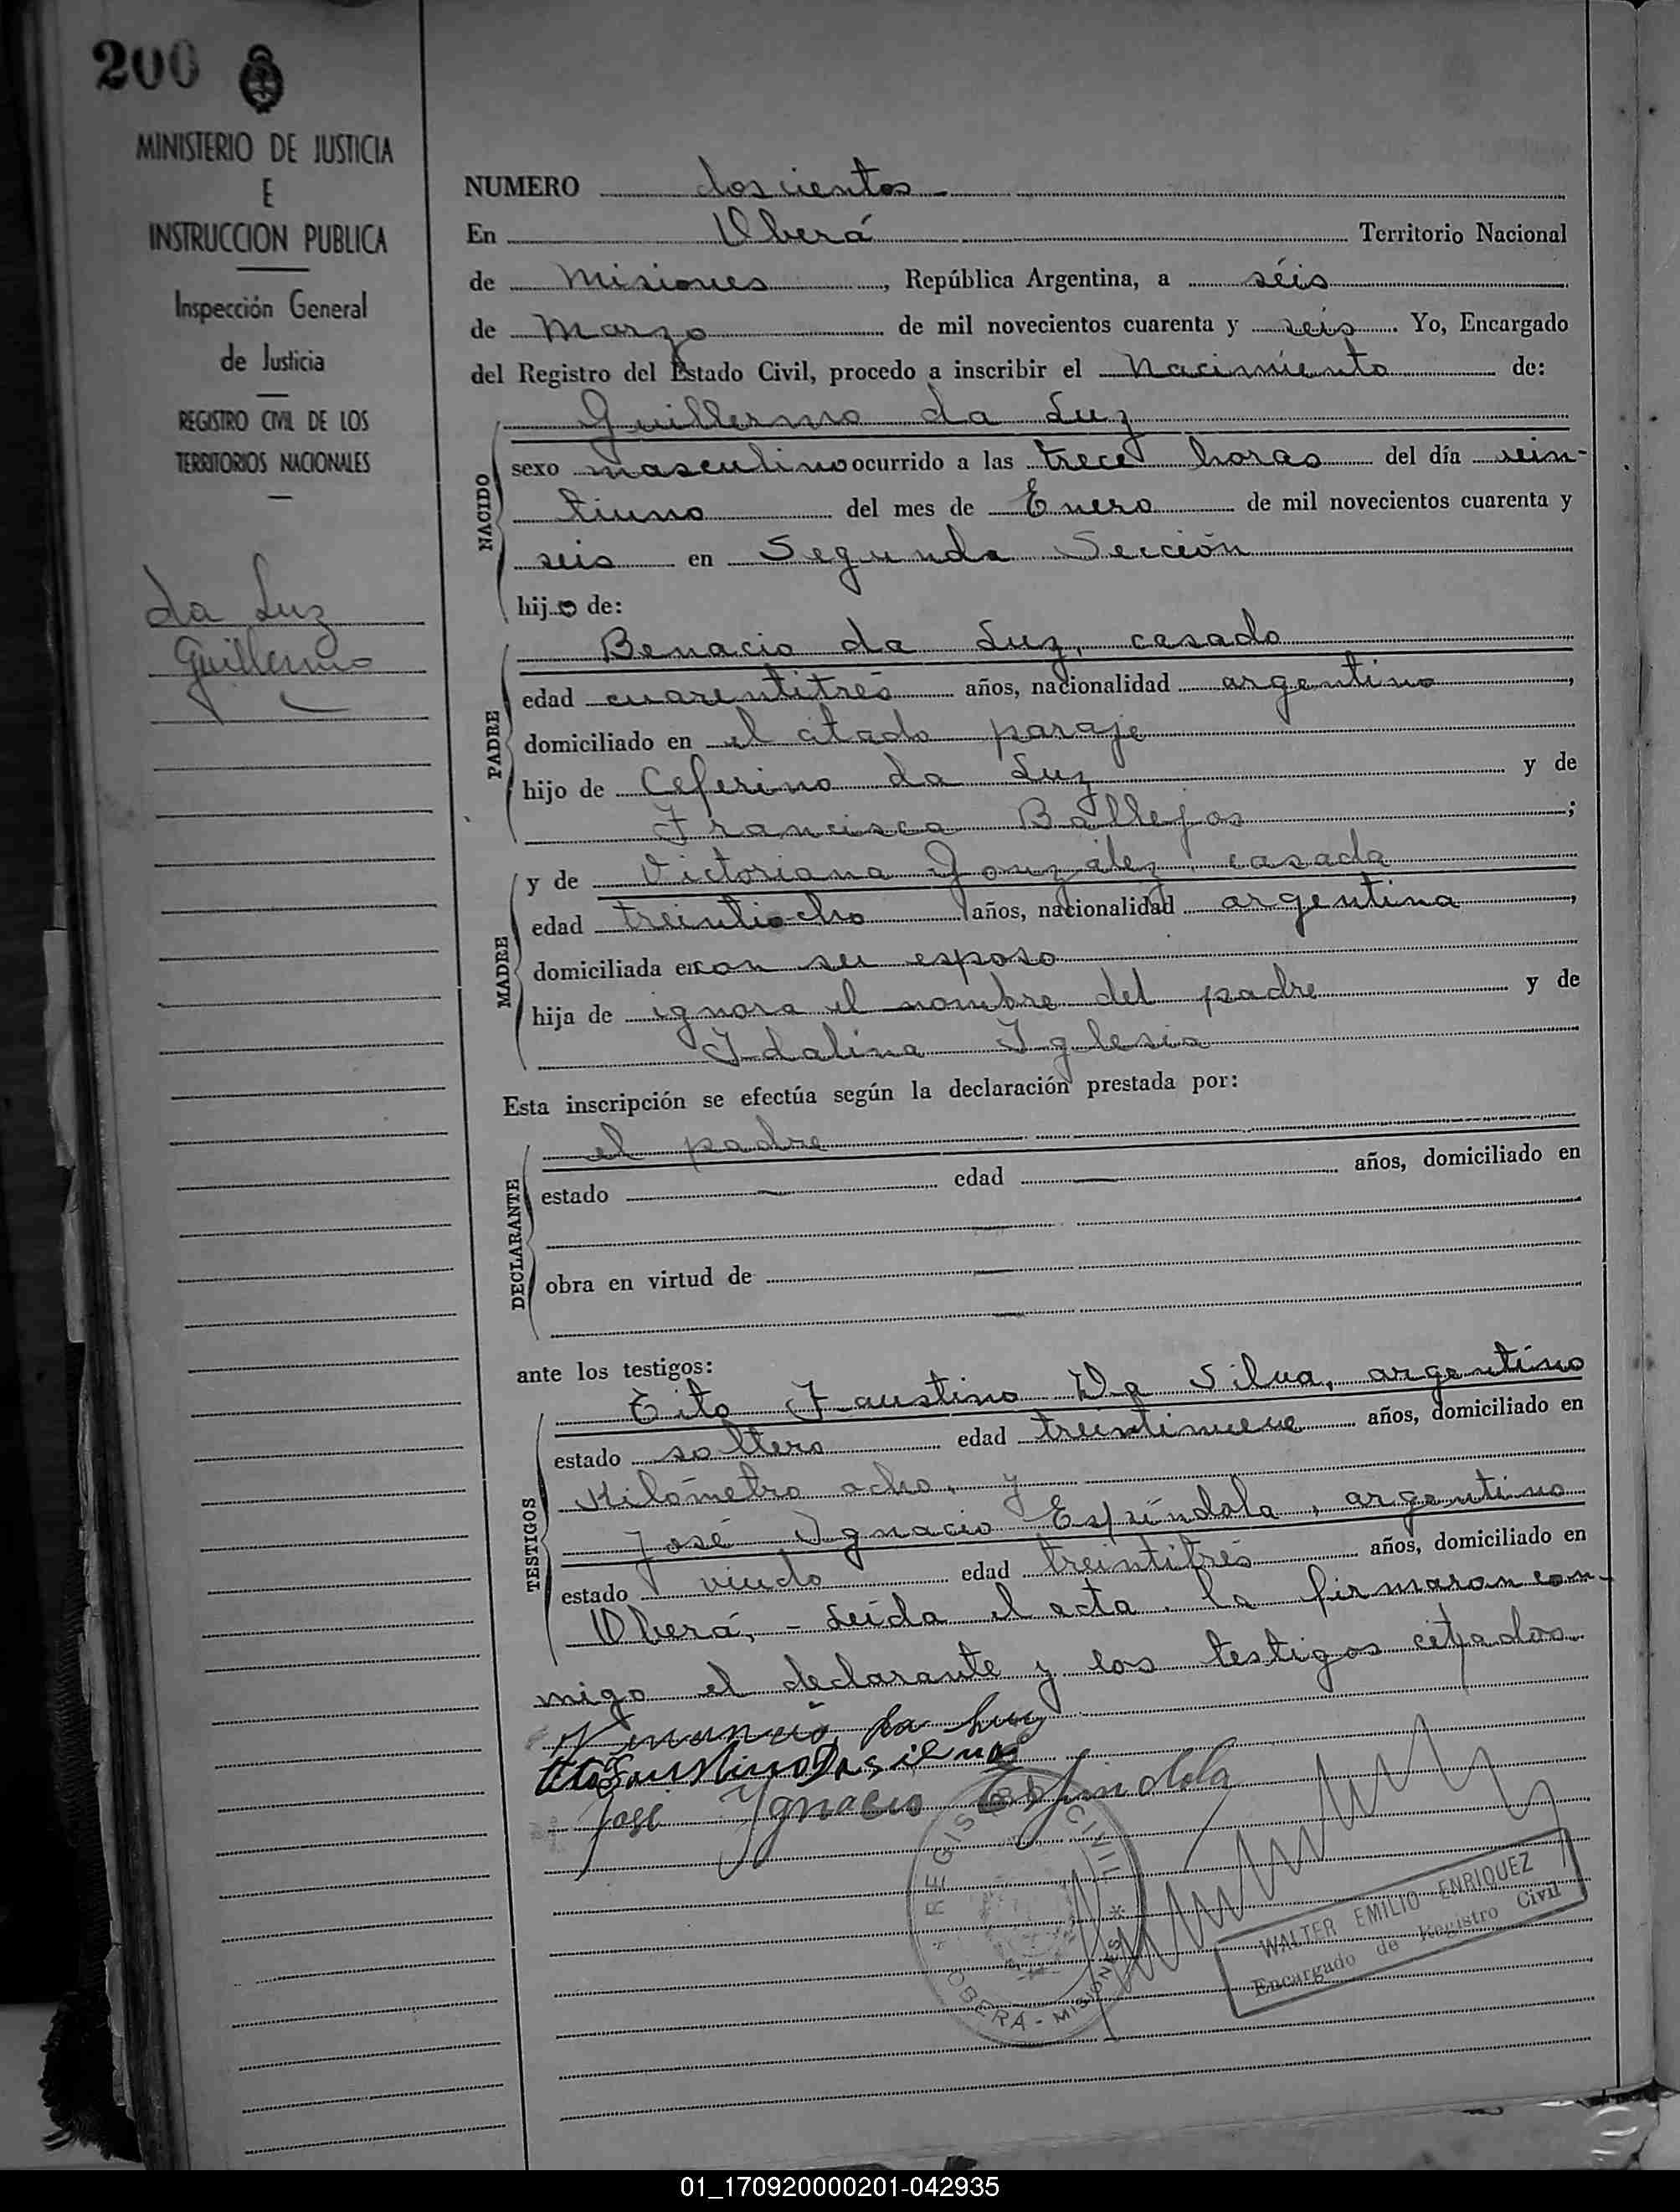 200
MINISTERIO DE JUSTICIA
E
INSTRUCCION PUBLICA
Inspección General
de Justicia
REGISTRO CIVIL DE LOS
TERRITORIOS NACIONALES
da Luz
Guillermo
NUMERO doscientos
En Oberá Territorio Nacional
de Misiones, República Argentina, a séis
de Marzo de mil novecientos cuarenta y seis. Yo, Encargado
del Registro del Estado Civil, procedo a inscribir el Nacimiento de:
NACIDO
Guillermo da Luz
sexo masculino ocurrido a las trece horas del día vein-
tiuno del mes de Enero de mil novecientos cuarenta y
seis en Segunda Sección
hijo de:
PADRE
Benacio da Luz, casado
edad cuarentitrés años, nacionalidad argentino,
domiciliado en el citado paraje
hijo de Ceferino da Luz y de
Francisca Ballejos;
MADRE
y de Victoriana González, casada
edad treintiocho años, nacionalidad argentina,
domiciliada en con su esposo
hija de ignora el nombre del padre y de
Idalina Iglesia
Esta inscripción se efectúa según la declaración prestada por:
DECLARANTE
el padre
estado — edad — años, domiciliado en
—
obra en virtud de —
—
ante los testigos:
TESTIGOS
Tito Faustino Da Silva, argentino
estado soltero edad treintinueve años, domiciliado en
Kilómetro ocho, y
José Ignacio Espíndola, argentino
estado viudo edad treintitrés años, domiciliado en
Oberá, - Leída el acta, la firmaron con-
migo el declarante y los testigos citados
da Luz
Tito Faustino Da silva
José Ygnacio Espindola
* REGISTRO CIVIL *
OBERÁ - MISIONES
WALTER EMILIO ENRIQUEZ
Encargado de Registro Civil
01_170920000201-042935